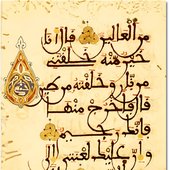 من العالين قال أنا
خير منه خلقتني
من نار وخلقته من طين
قال فاخرج منها
فإنك رجيم
وإن عليك لعنتي إلى